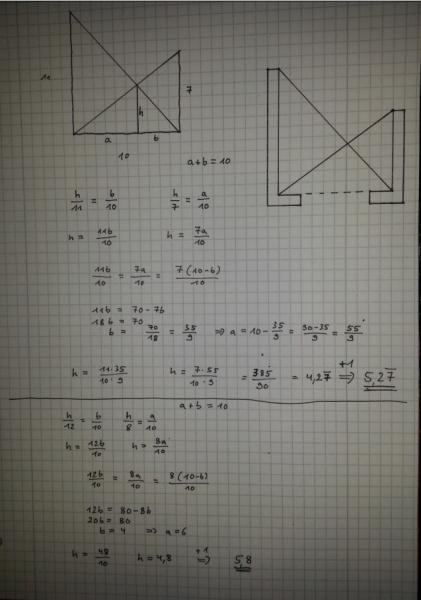 11
7
h
a b
10
a+b = 10
h/11 = b/10 h/7 = a/10
h = 11b/10 h = 7a/10
11b/10 = 7a/10 = 7(10-b)/10
11b = 70 - 7b
18b = 70
b = 70/18 = 35/9 ⇒ a = 10 - 35/9 = 90-35/9 = 55/9
h = 11·35/10·9 h = 7·55/10·9 = 385/90 = 4,27̅ +1 ⇒ 5,27̅
a+b = 10
h/12 = b/10 h/8 = a/10
h = 12b/10 h = 8a/10
12b/10 = 8a/10 = 8(10-b)/10
12b = 80 - 8b
20b = 80
b = 4 ⇒ a = 6
h = 48/10 h = 4,8 +1 ⇒ 5,8